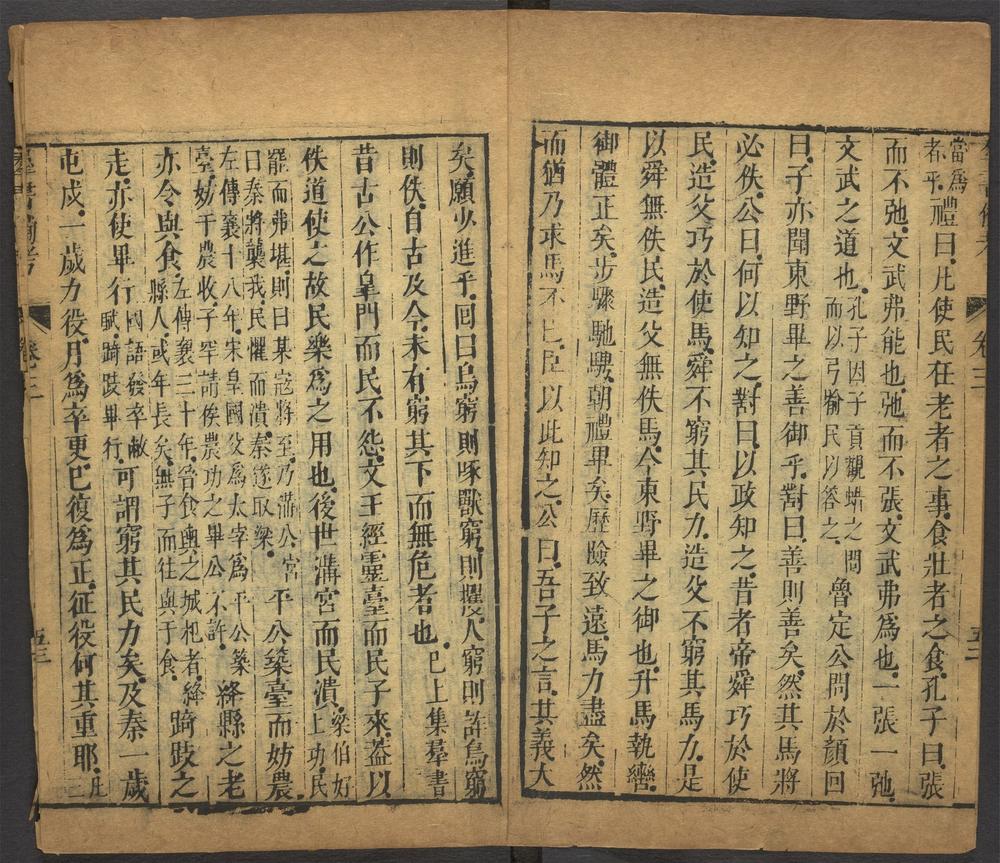 當為
者乎。禮曰。凡使民任老者之事。食壯者之食。孔子曰。張
而不弛。文武弗能也。弛而不張。文武弗為也。一張一弛。
文武之道也。孔子因子貢觀蜡之問
而以弓喻民以答之。魯定公問於顏回
曰。子亦聞東野畢之善御乎。對曰。善則善矣。然其馬將
必佚。公曰。何以知之。對曰。以政知之。昔者帝舜巧於使
民。造父巧於使馬。舜不窮其民力。造父不窮其馬力。是
以舜無佚民。造父無佚馬。今東野畢之御也。升馬執轡。
御體正矣。步驟馳騁。朝禮畢矣。歷險致遠。馬力盡矣。然
而猶乃求馬不已。臣以此知之。公曰。吾子之言。其義大
矣。願少進乎。回曰。鳥窮則啄。獸窮則攫。人窮則詐。鳥窮
則佚。自古及今。未有窮其下而無危者也。已上集羣書
昔古公作皐門而民不怨。文王經靈臺而民子來。蓋以
佚道使之。故民樂為之用也。後世溝宮而民潰。梁伯好
土功。民
罷而弗堪。則曰某寇將至。乃溝公宮
曰秦將襲我。民懼而潰。秦遂取梁。平公築臺而妨農。
左傳襄十八年。宋皇國父為太宰。為平公築
臺。妨于農收。子罕請俟農功之畢。公不許。絳縣之老
亦令與食。左傳襄三十年。晉食輿之城杞者。絳
縣人。或年長矣。無子而往。與于食。踦跂之
走。亦使畢行。國語發卒敝
賦。踦跂畢行。可謂窮其民力矣。及秦一歲
屯戍。一歲力役。月為卒更。已復為正。征役何其重耶。
羣書備考 卷三 五三